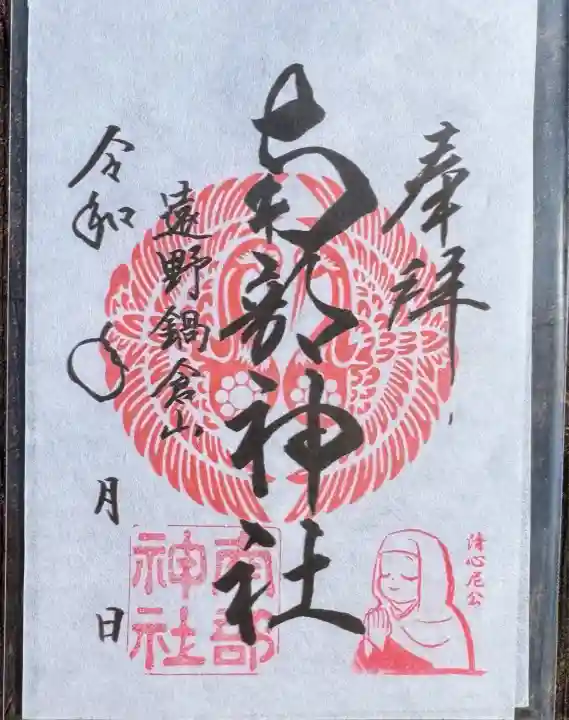 奉拝
南部神社
遠野鍋倉山
令和 年 月 日
南部
神社
清心尼公